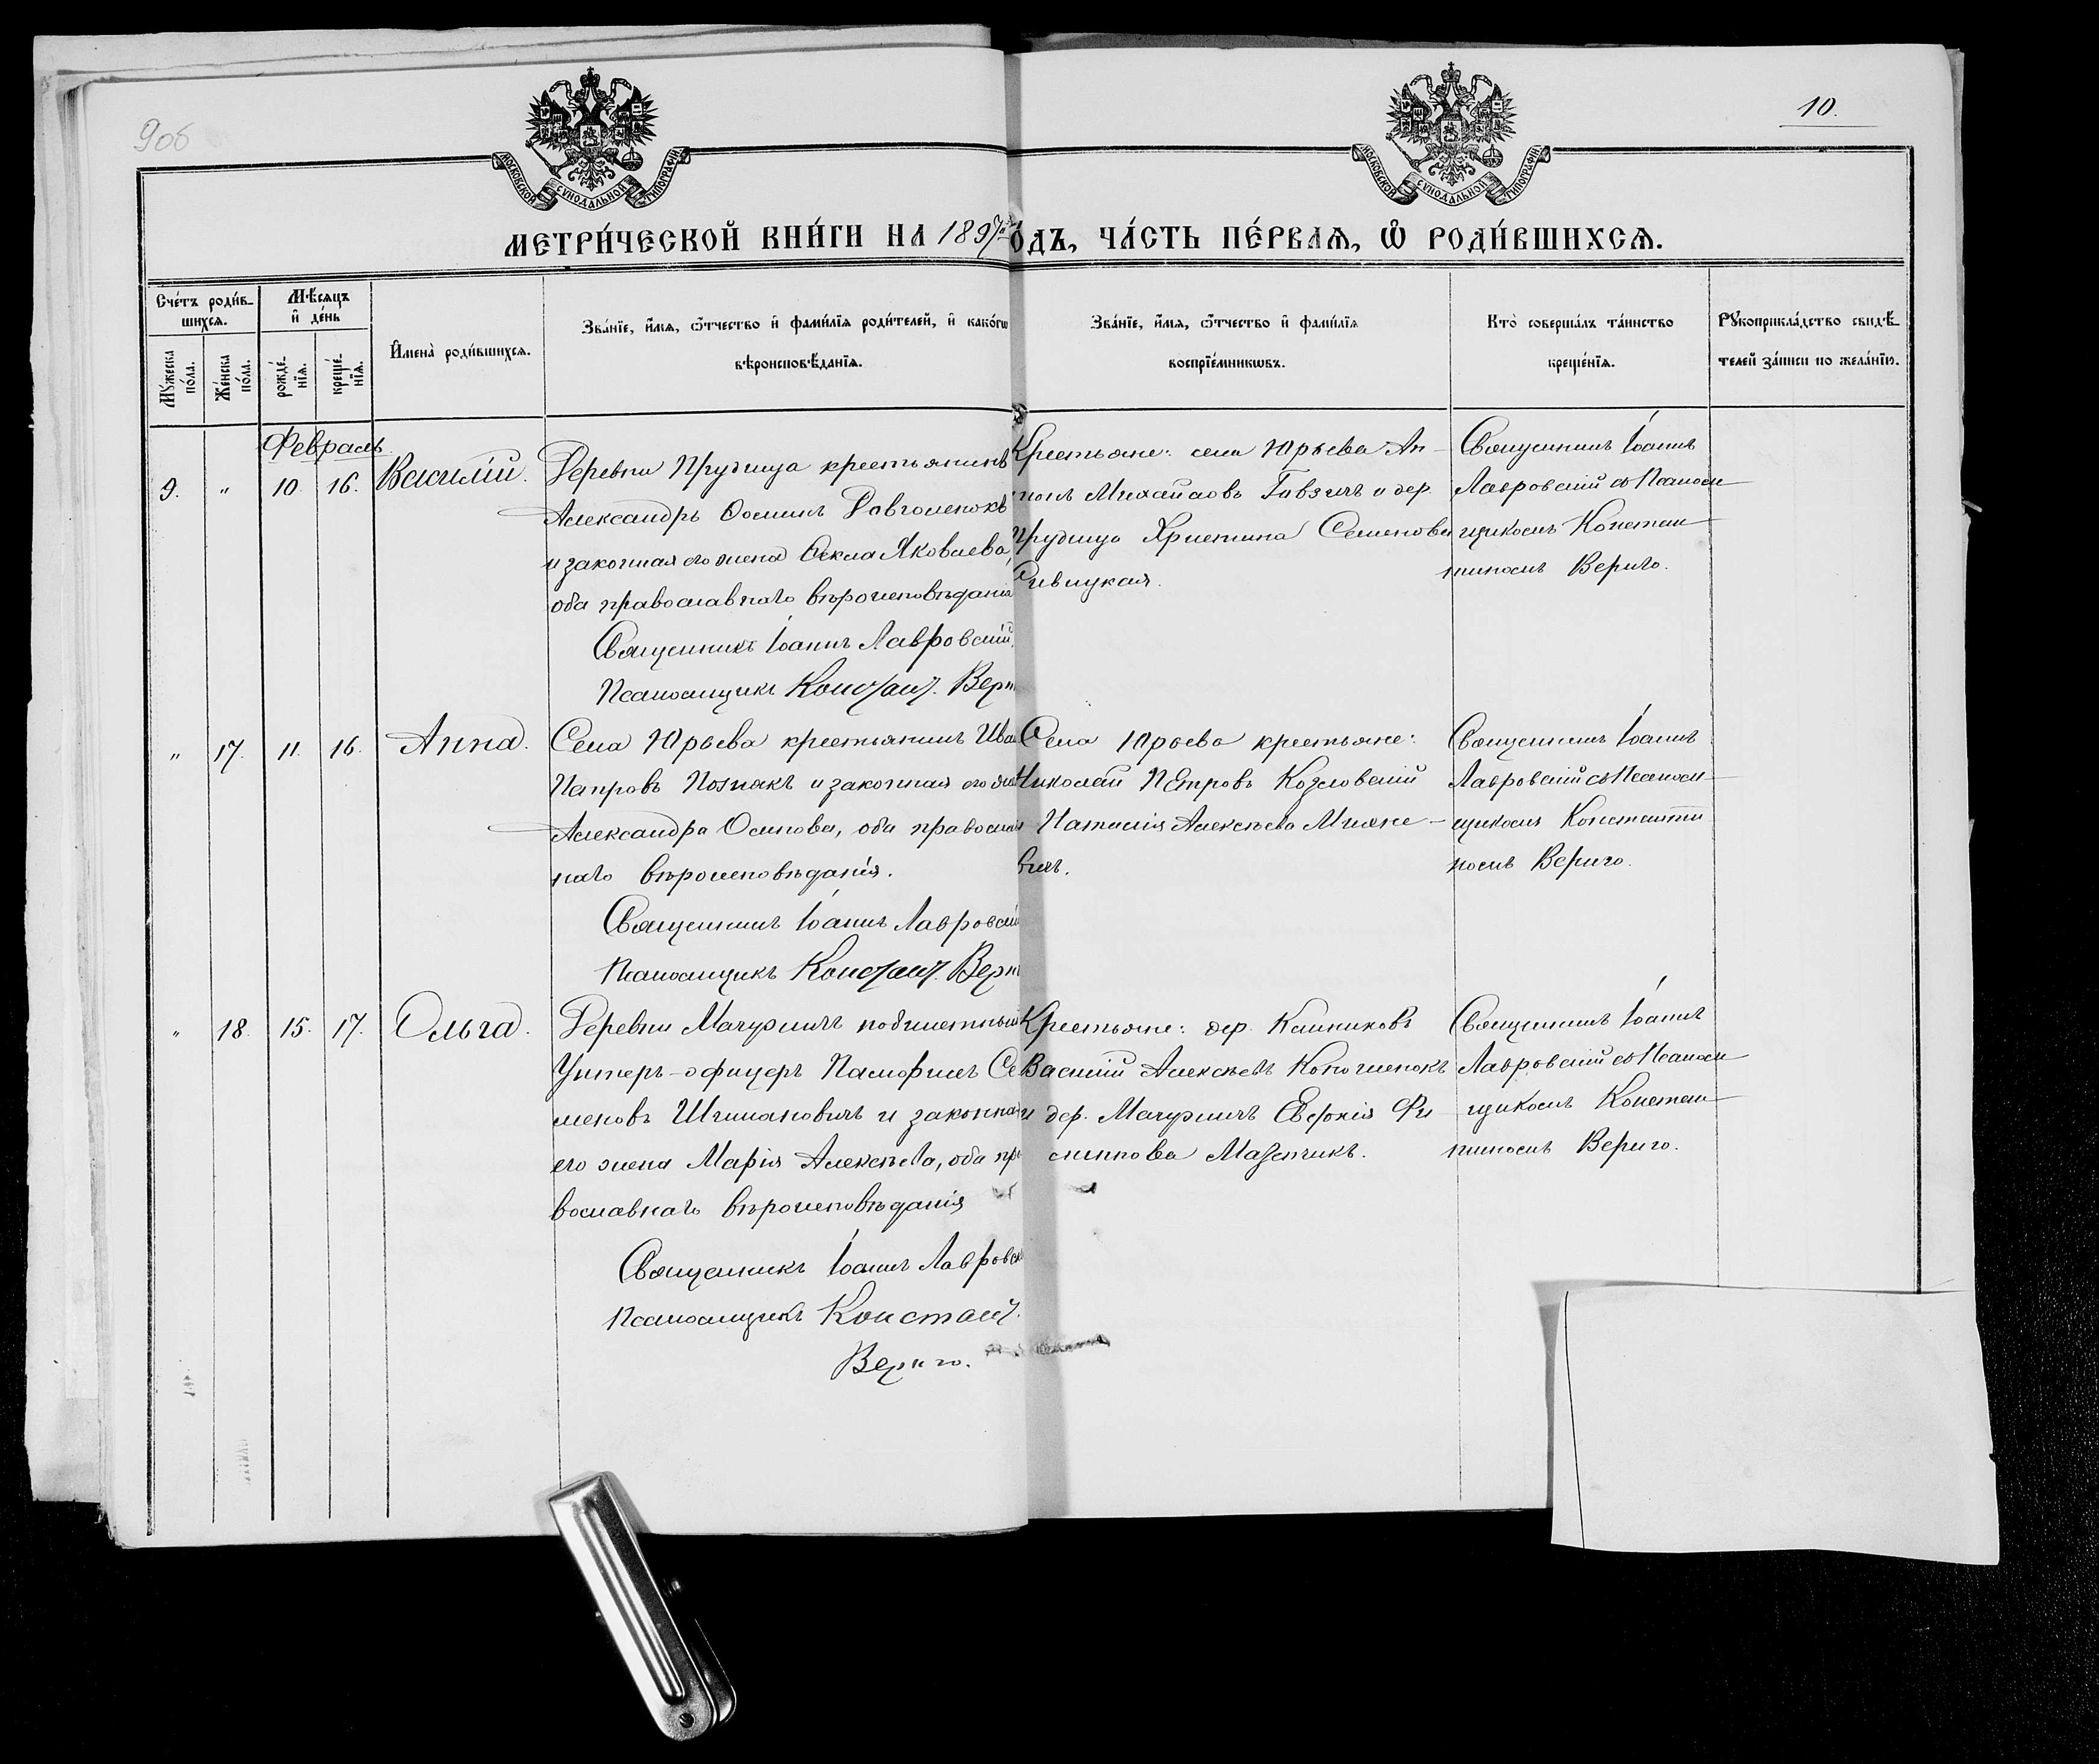 9об
10.
МОСКОВСКОЙ СѴНОДАЛЬНОЙ ТИПОГРАФІИ
МОСКОВСКОЙ СѴНОДАЛЬНОЙ ТИПОГРАФІИ
МЕТРИ́ЧЕСКОЙ КНИ́ГИ НА 1897 го́дъ, ЧА́СТЬ ПЕ́РВАѦ, Ѽ РОДИ́ВШИХСѦ.
Сче́тъ роди́в-
шихсѧ.
Мꙋ́жеска по́ла.
Же́нска по́ла.
Мѣ́сѧцъ
и҆ де́нь
рожде́-
нїѧ.
креще́-
нїѧ.
И҆мена̀ роди́вшихсѧ.
Зва́нїе, и҆́мѧ, ѻ҆́тчество и҆ фами́лїѧ роди́телей, и҆ како́гѡ
вѣроисповѣ́данїѧ.
Зва́нїе, и҆́мѧ, ѻ҆́тчество и҆ фами́лїѧ
воспрїе́мникѡвъ.
Кто̀ соверша́лъ та́инство
креще́нїѧ.
Рꙋкоприкла́дство свидѣ́-
телей за́писи по жела́нїю.
Февраль
9. " 10. 16. Василій.
Деревни Прудища крестьянинъ
Александръ Ѳоминъ Довголенокъ
и законная его жена Ѳекла Яковлева,
оба православнаго вѣроисповѣданія
Священникъ Іоаннъ Лавровскій.
Псаломщикъ Констант. Вери
Крестьяне: села Юрьева Ан-
тонъ Михайловъ Гавзичъ и дер.
Прудища Христина Семенова
Сивицкая.
Священникъ Іоаннъ
Лавровскій съ Псалом
щикомъ Констан
тиномъ Вериго.
" 17. 11. 16. Анна.
Села Юрьева крестьянинъ Ива
Петровъ Познякъ и законная его же
Александра Осипова, оба православ
наго вѣроисповѣданія.
Священникъ Іоаннъ Лавровскій
Псаломщикъ Констант. Вери
Села Юрьева крестьяне:
Николай Петровъ Козловскій
и Наталія Алексѣева Михне-
вичъ.
Священникъ Іоаннъ
Лавровскій съ Псалом
щикомъ Константи
номъ Вериго.
" 18. 15. 17. Ольга.
Деревни Мачужичъ подчиненный
Унтеръ-офицеръ Памфилъ Се
меновъ Шимановичъ и законная
его жена Марія Алексѣева, оба пра
вославнаго вѣроисповѣданія
Священникъ Іоаннъ Лавровск
Псаломщикъ Констант.
Вериго.
Крестьяне: дер.
Василій Алексѣевъ
и дер. Мачужичъ Евфимія Фи
липпова Мазепчикъ.
Священникъ Іоаннъ
Лавровскій съ Псалом
щикомъ Констан
тиномъ Вериго.